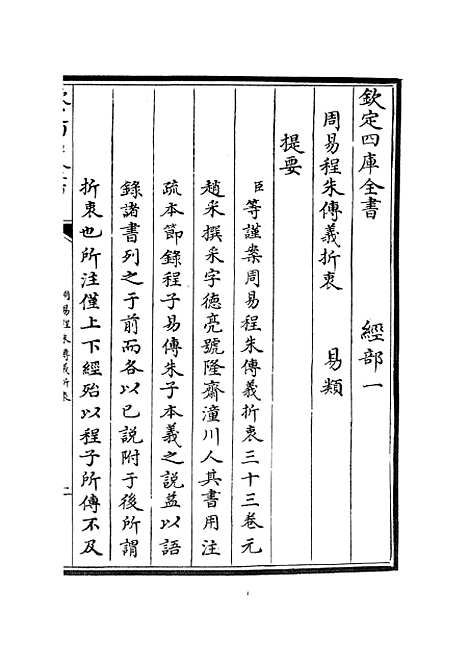 欽定四庫全書　　　經部一
周易程朱傳義折衷　　易類
提要
臣等謹案周易程朱傳義折衷三十三卷元
趙采撰采字德亮號隆齋潼川人其書用注
疏本節錄程子易傳朱子本義之説益以語
錄諸書列之于前而各以已説附于後所謂
折衷也所注僅上下經殆以程子所傳不及
周易程朱傳義折衷